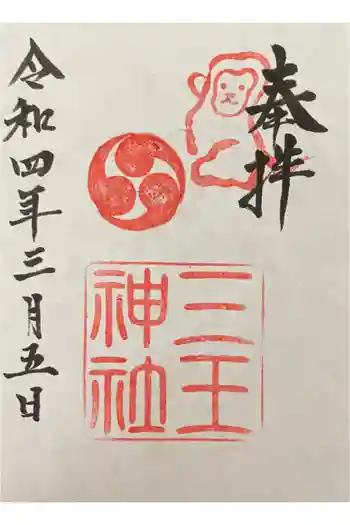 奉拝
三王
神社
令和四年三月五日